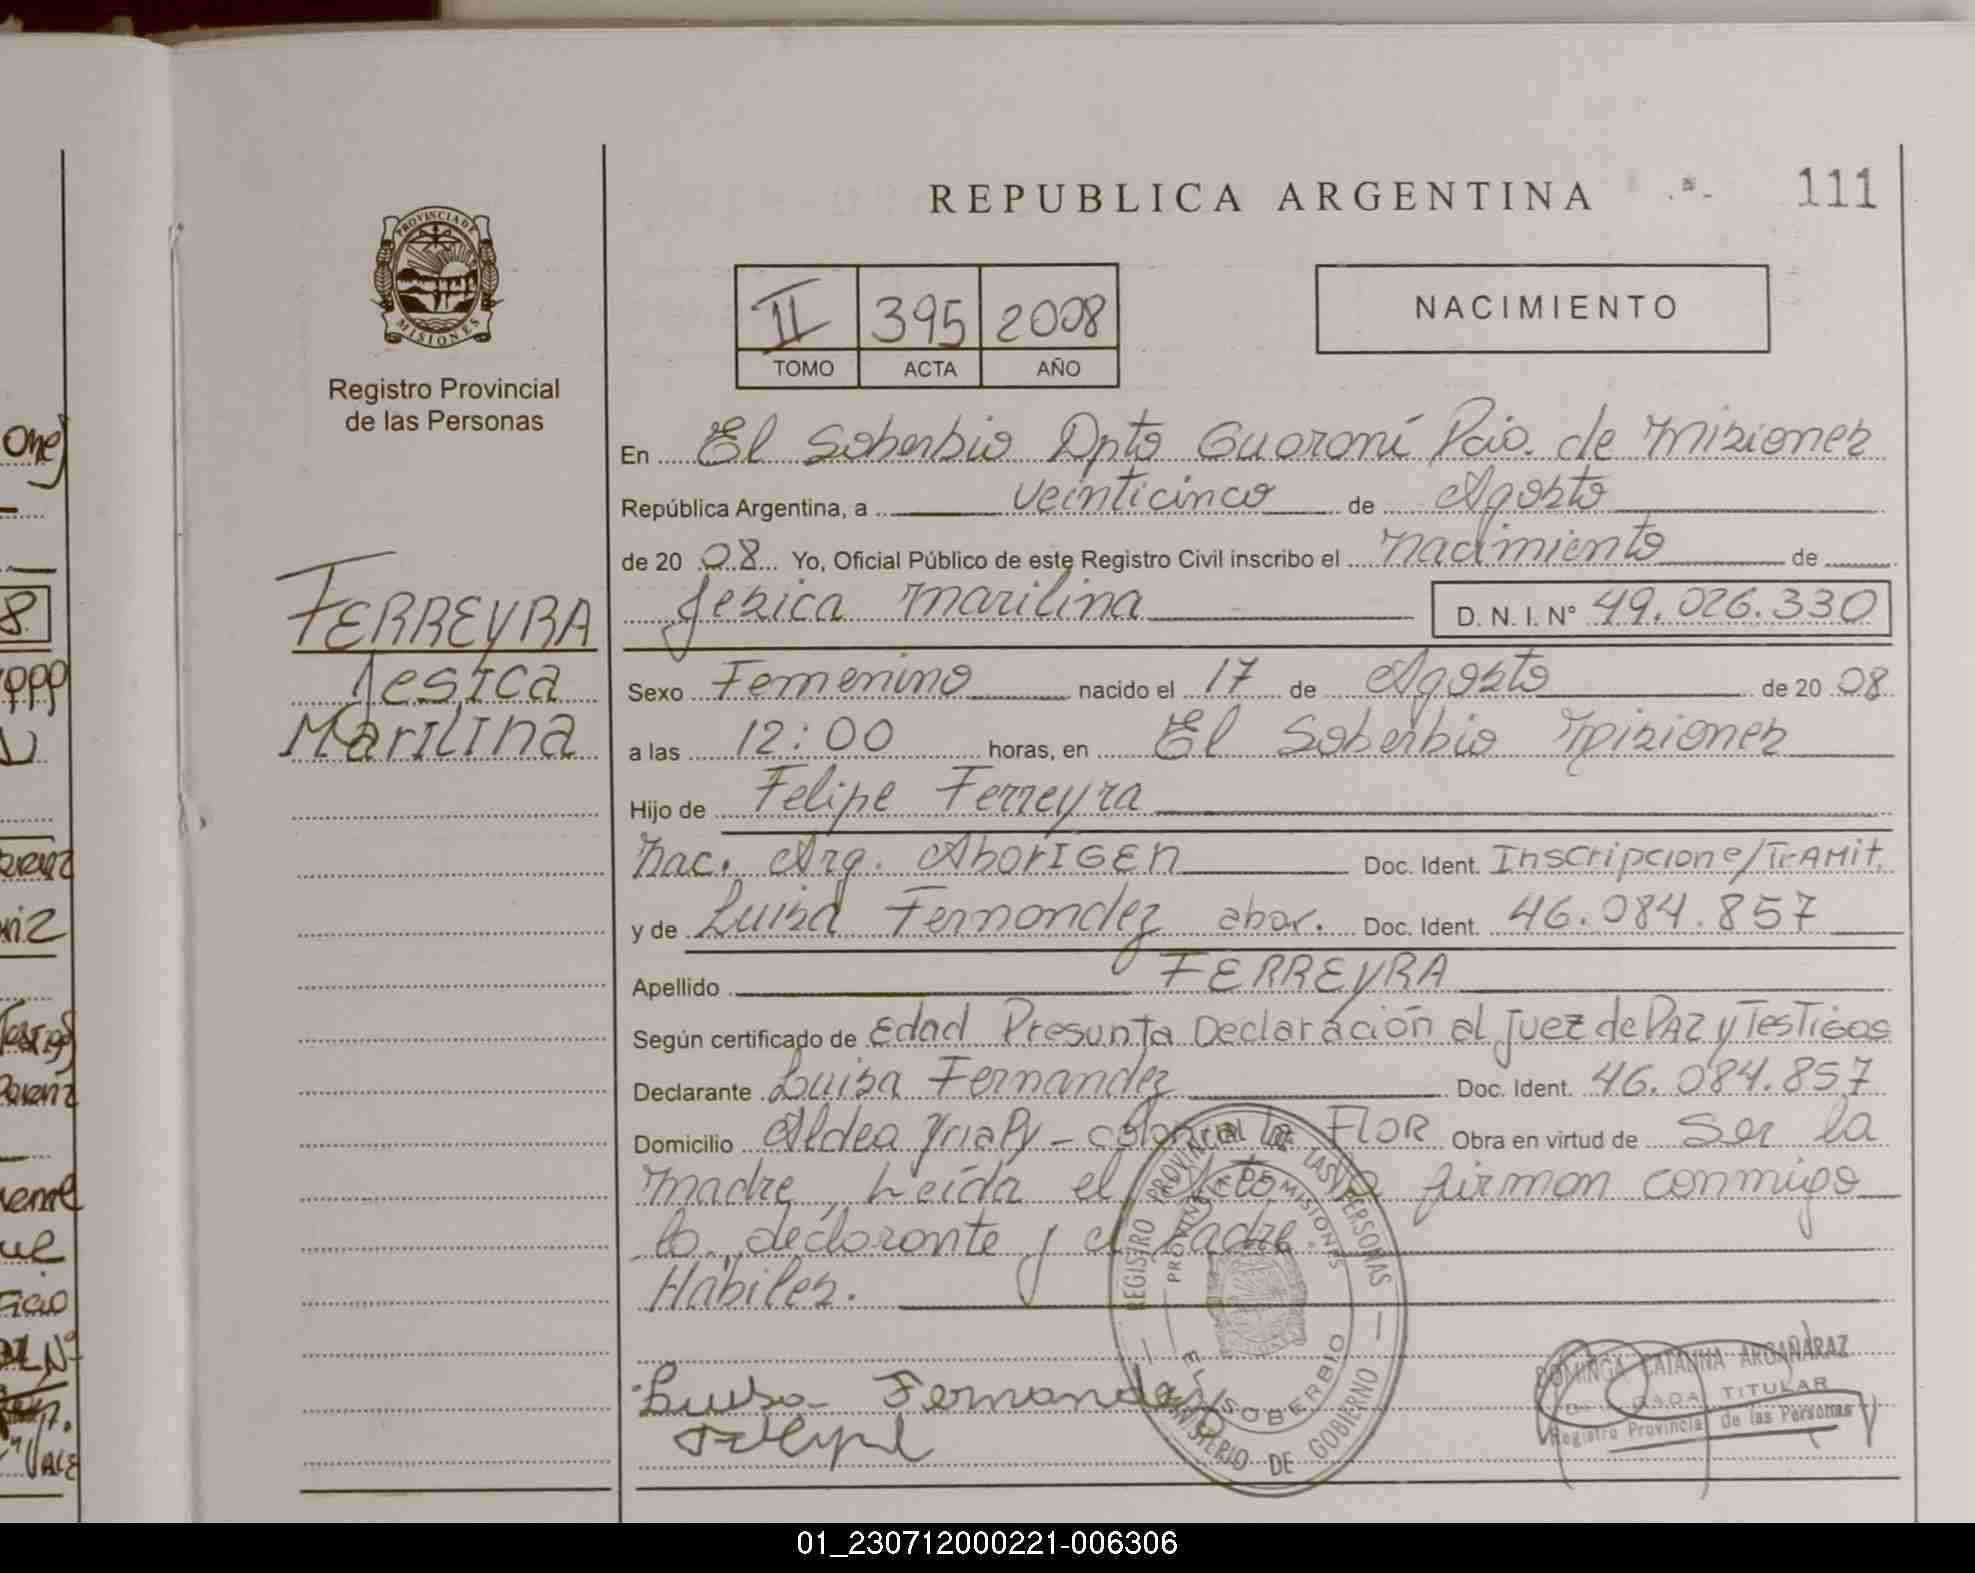 REPUBLICA ARGENTINA
111
PROVINCIA DE
MISIONES
Registro Provincial
de las Personas
II 395 2008
TOMO ACTA AÑO
NACIMIENTO
FERREYRA
Jesica
Marilina
En El Soberbio Dpto Guaraní Pcia. de Misiones
República Argentina, a veinticinco de Agosto
de 2008 Yo, Oficial Público de este Registro Civil inscribo el nacimiento de
Jesica Marilina D. N. I. N° 49.026.330
Sexo Femenino nacido el 17 de Agosto de 2008
a las 12:00 horas, en El Soberbio Misiones
Hijo de Felipe Ferreyra
Nac. Arg. AborIGEN Doc. Ident. Inscripcion e/TrAMit.
y de Luisa Fernandez abor. Doc. Ident. 46.084.857
Apellido FERREYRA
Según certificado de Edad Presunta Declaración al Juez de PAZ y Testigos
Declarante Luisa Fernandez Doc. Ident. 46.084.857
Domicilio Aldea YriaPy - colonia la FLOR Obra en virtud de Ser la
madre, Leída el Acta firman conmigo
la declarante y el Padre.
Hábiles.
Luisa Fernandez
REGISTRO PROVINCIAL DE LAS PERSONAS
PROVINCIA DE MISIONES
EL SOBERBIO
MINISTERIO DE GOBIERNO
DOMINGA CATALINA ARGAÑARAZ
DELEGADA TITULAR
Registro Provincial de las Personas
01_230712000221-006306